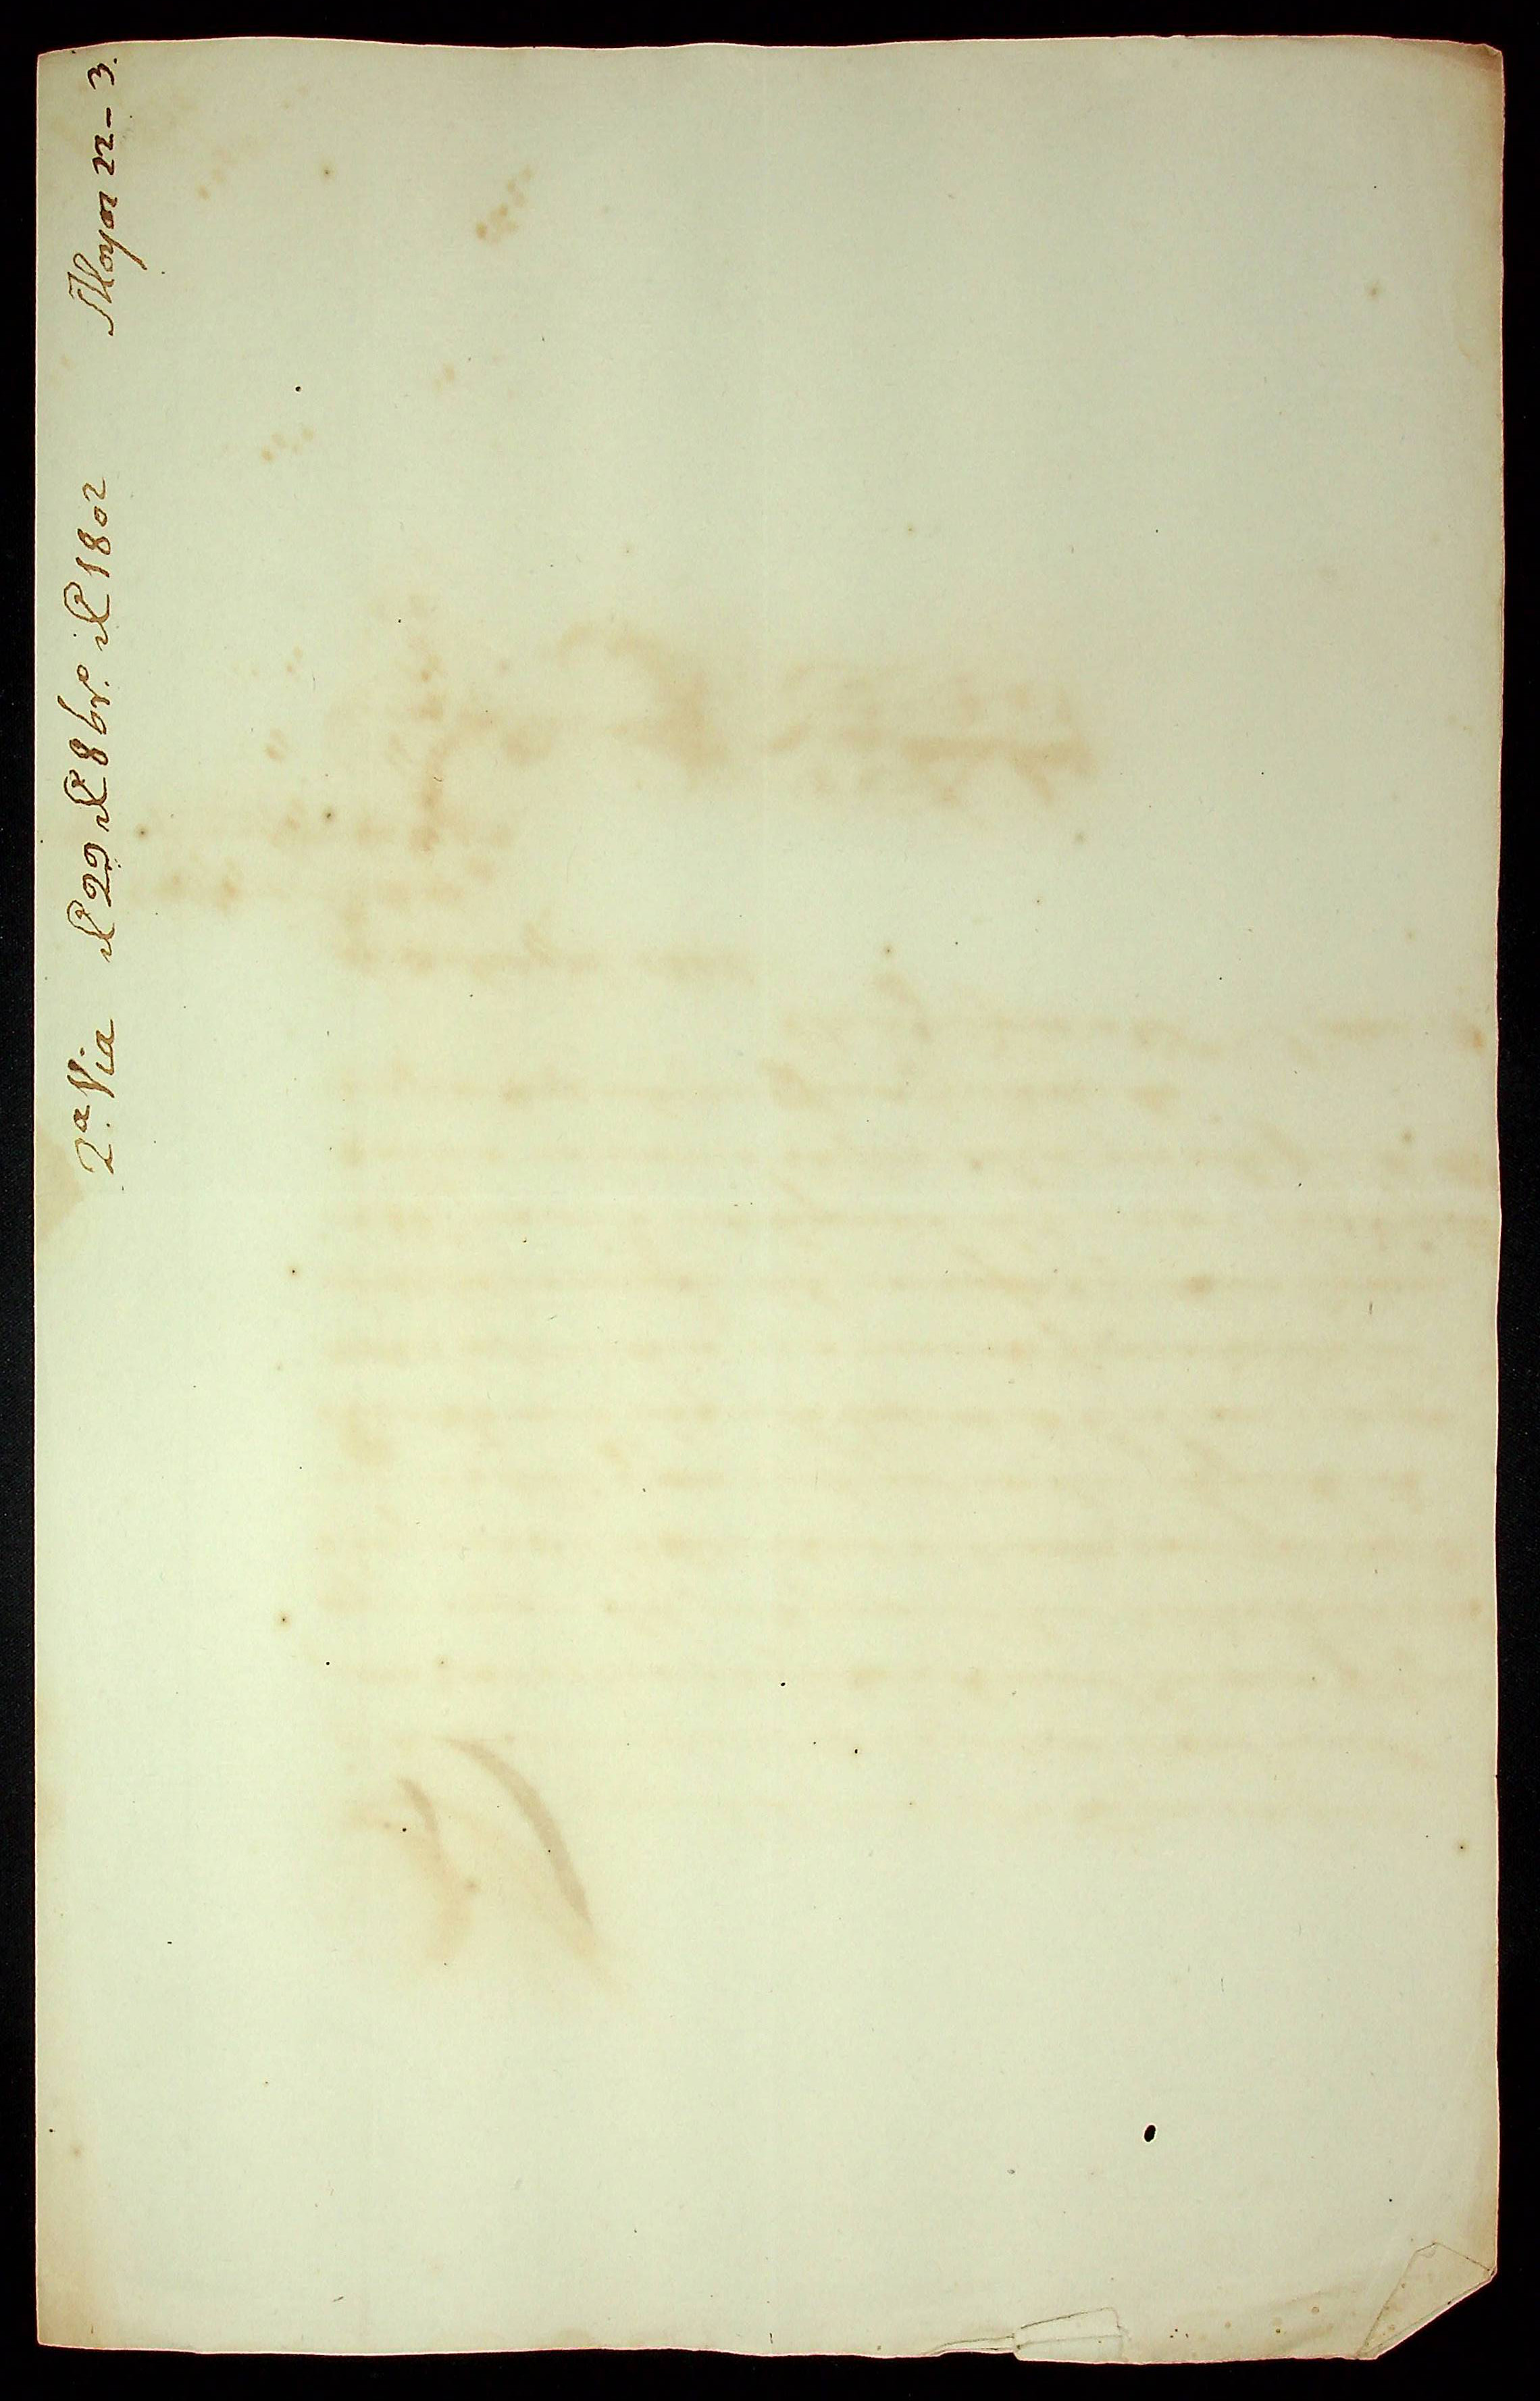 2.ª Via de 29 de 8br.º de 1802 22-3.